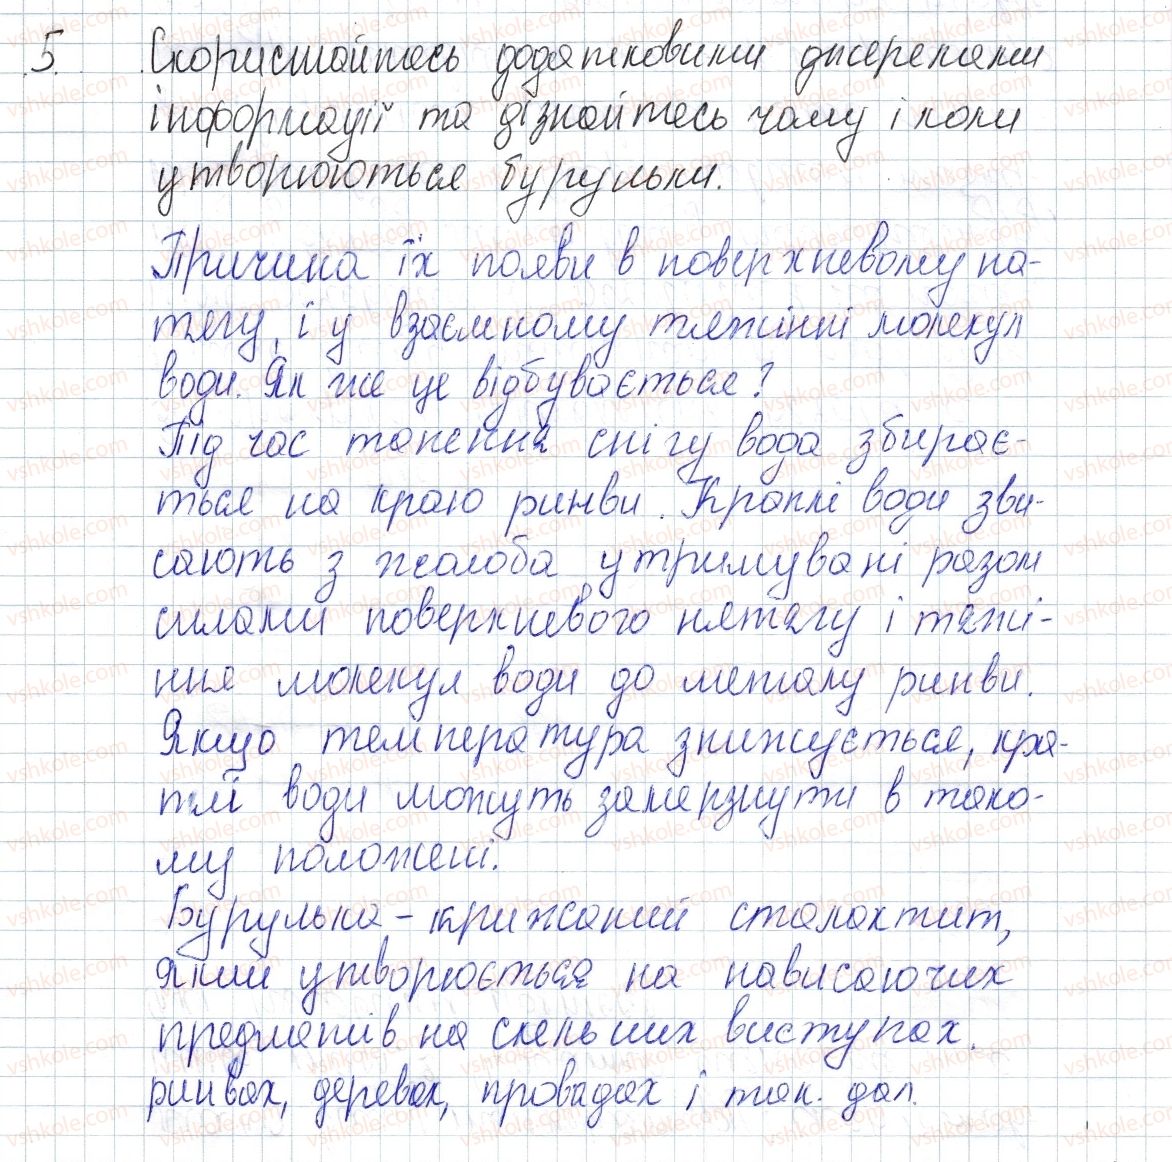 5. Скористайтесь додатковими джерелами
інформації та дізнайтесь чому і коли
утворюються бурульки.
Причина їх появи в поверхневому на-
тягу, і у взаємному тяжінні молекул
води. Як же це відбувається?
Під час танення снігу вода збирає-
ться на краю ринви. Краплі води зви-
сають з жолоба утримувані разом
силами поверхневого нятягу і тяжі-
ння молекул води до металу ринви.
Якщо температура знижується, кра-
плі води можуть замерзнути в тако-
му положені.
Бурулька - крижаний сталактит,
який утворюється на нависаючих
предметів на скельних виступах.
ринвах, деревах, провадах і так. дал.